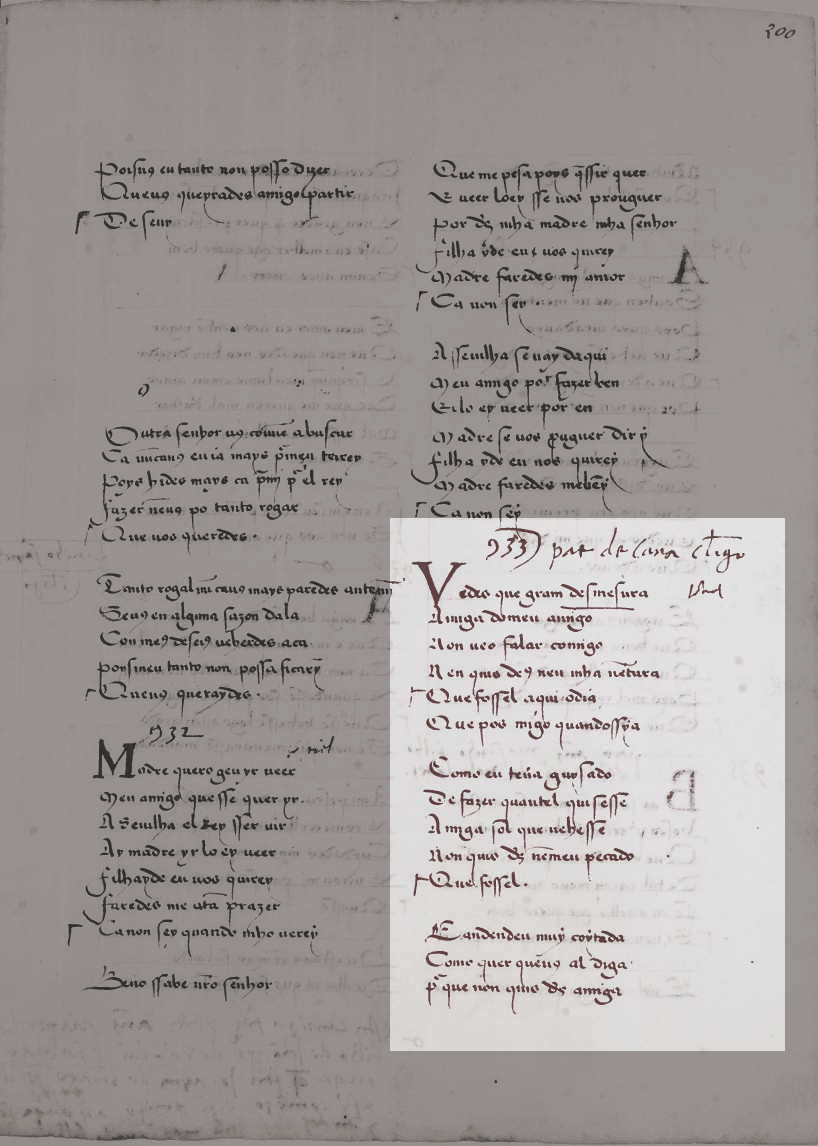 200
Poisus eu tanto non posso dizer
Que uꝯ queyrades amigo partir
De seuir
Outra senhor uꝯ cōuē a buscar
Ca nūcauꝯ eu ia mays
Poys hides mays ca pᵉl rey
fazer neuꝯ po tanto rogar
Que uos queredes
Tanto rogal mays paredes
Seuꝯ en alguna sazon dala
Con meꝯ deseiꝯ ueherdes aca
poys meu tanto non possa ficar
Que uꝯ queraydes
932
Madre quero geu yr ueer
Meu amigo que sse quer yr
A Seuilha el Rey sser uir
Ay madre yr lo ey ueer
filha yde eu uos quirey
faredes me atā prazer
Ca non sey quando mho uerey
Beno ssabe nr̄o senhor
Que me pesa poys q̄ssir quer
E ueer loey sse uos prouguer
Por dꝯ mha madre mha senhor
filha yde eu uos quirey
Madre faredes mi amor
Ca non sey
A sseuilha se uay daqui
Meu amigo por fazer ben
Eilo ey ueer por en
Madre se uos prouguer dir y
filha yde eu uos quirey
Madre faredes me bē y
Ca non sey
933 pae de Cana cligo
Vedes que gram desmesura
Amiga do meu amigo
Non ueo falar comigo
Nen quis deꝯ nen mha uētura
Que fossel aqui o dia
Que pos migo quandossya
Como eu teūa guysado
De fazer quantel quisesse
Amiga sol que uehesse
Non quis dꝯ nē meu pecado
Que fossel
E andendeu muy coytada
Como quer queuꝯ al diga
pʳque non quis dꝯ amiga